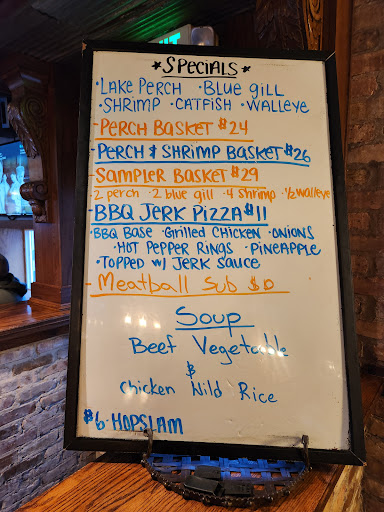 ★SPECIALS★
·LAKE PERCH ·BLUE GILL
·SHRIMP ·CATFISH ·WALLEYE
-PERCH BASKET $24
-PERCH & SHRIMP BASKET $26
-SAMPLER BASKET $29
2 perch ·2 blue gill ·4 shrimp ·1/2 walleye
-BBQ JERK PIZZA $11
·BBQ BASE ·GRILLED CHICKEN ·ONIONS
·HOT PEPPER RINGS ·PINEAPPLE
·TOPPED W/ JERK SAUCE
-Meatball Sub
Soup
Beef Vegetable
&
Chicken Wild Rice
$6-HOPSLAM